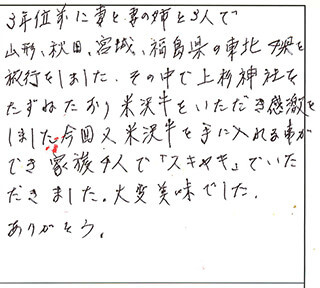 3年位前に妻と妻の姉と3人で
山形、秋田、宮城、福島県の東北4県を
旅行をしました。その中で上杉神社を
たずねたおり米沢牛をいただき感激を
しました。今回又米沢牛を手に入れる事が
でき家族4人で「スキヤキ」でいた
だきました。大変美味でした。
ありがとう。